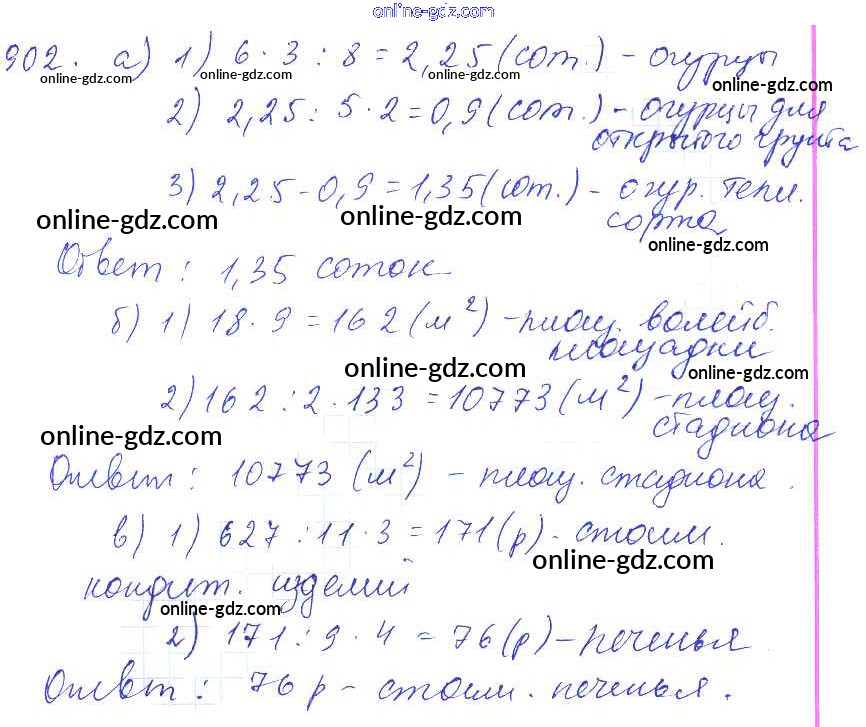 online-gdz.com
902. а) 1) 6 · 3 : 8 = 2,25 (сот.) - огурцы
online-gdz.com online-gdz.com online-gdz.com online-gdz.com
2) 2,25 : 5 · 2 = 0,9 (сот.) - огурцы для
открытого грунта
3) 2,25 - 0,9 = 1,35 (сот.) - огур. тепл.
online-gdz.com online-gdz.com сорта
online-gdz.com
Ответ: 1,35 соток
б) 1) 18 · 9 = 162 (м²) - площ. волейб.
площадки
online-gdz.com online-gdz.com
2) 162 : 2 · 133 = 10773 (м²) - площ.
стадиона
online-gdz.com
Ответ: 10773 (м²) - площ. стадиона.
в) 1) 627 : 11 · 3 = 171 (р) - стоим.
online-gdz.com
кондит. изделий
online-gdz.com
2) 171 : 9 · 4 = 76 (р) - печенья
online-gdz.com
Ответ: 76 р - стоим. печенья.